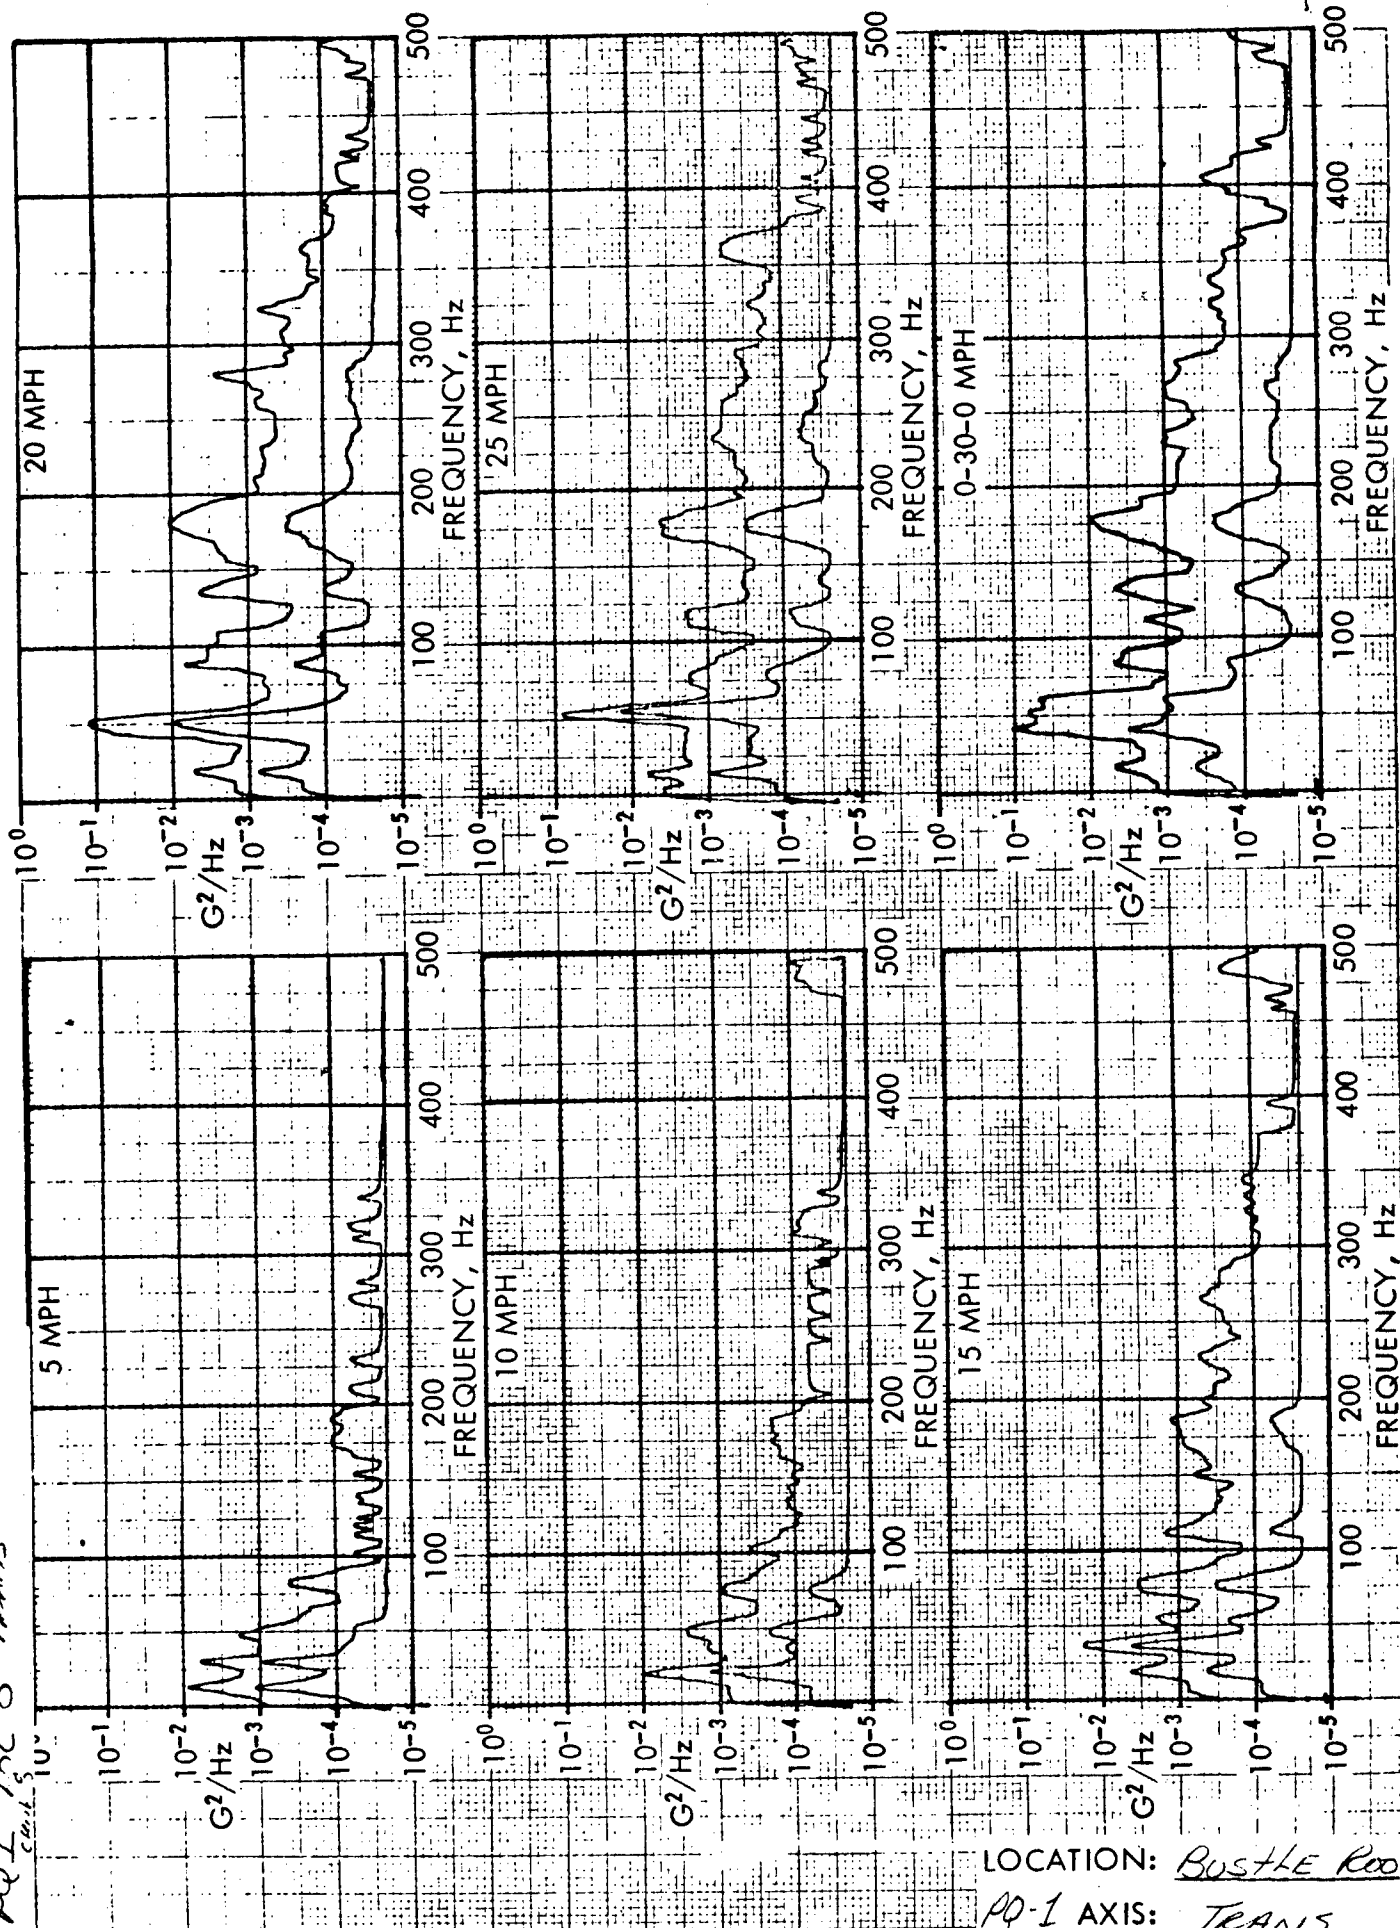 5 MPH
G²/Hz
10⁻¹
10⁻²
10⁻³
10⁻⁴
10⁻⁵
100
200
300
400
500
FREQUENCY, Hz
20 MPH
G²/Hz
10⁰
10⁻¹
10⁻²
10⁻³
10⁻⁴
10⁻⁵
100
200
300
400
500
FREQUENCY, Hz
10 MPH
G²/Hz
10⁰
10⁻¹
10⁻²
10⁻³
10⁻⁴
10⁻⁵
100
200
300
400
500
FREQUENCY, Hz
25 MPH
G²/Hz
10⁰
10⁻¹
10⁻²
10⁻³
10⁻⁴
10⁻⁵
100
200
300
400
500
FREQUENCY, Hz
15 MPH
G²/Hz
10⁰
10⁻¹
10⁻²
10⁻³
10⁻⁴
10⁻⁵
100
200
300
400
500
FREQUENCY, Hz
0-30-0 MPH
G²/Hz
10⁰
10⁻¹
10⁻²
10⁻³
10⁻⁴
10⁻⁵
100
200
300
400
500
FREQUENCY, Hz
LOCATION: BUSTLE ROO
PQ-1 AXIS: TRANS